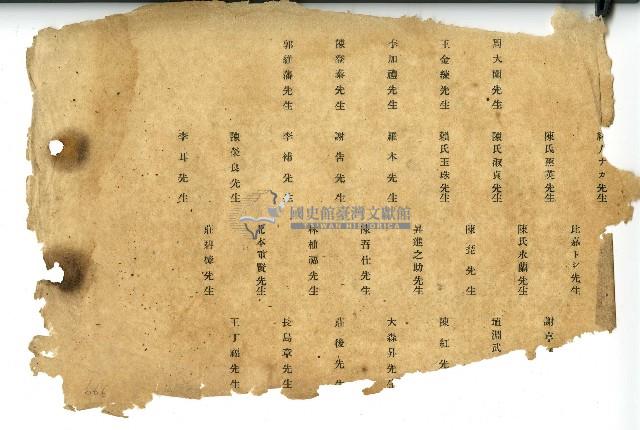 周大蘭先生
王金璇先生
李加禮先生
陳登泰先生
郭維藩先生
ナカ先生
陳氏燕英先生
陳氏淑貞先生
賴氏玉珠先生
羅木先生
謝告先生
李補先生
陳榮良先生
李耳先生
比嘉トシ先生
陳氏永蘭先生
陳 先生
昇進之助先生
陳吾仕先生
林柚福先生
本重賢先生
莊碧 先生
謝
淵武
陳紅先
大森昇先生
莊後先生
長島章先生
王丁福先生
國史館臺灣文獻館
TAIWAN HISTORICA